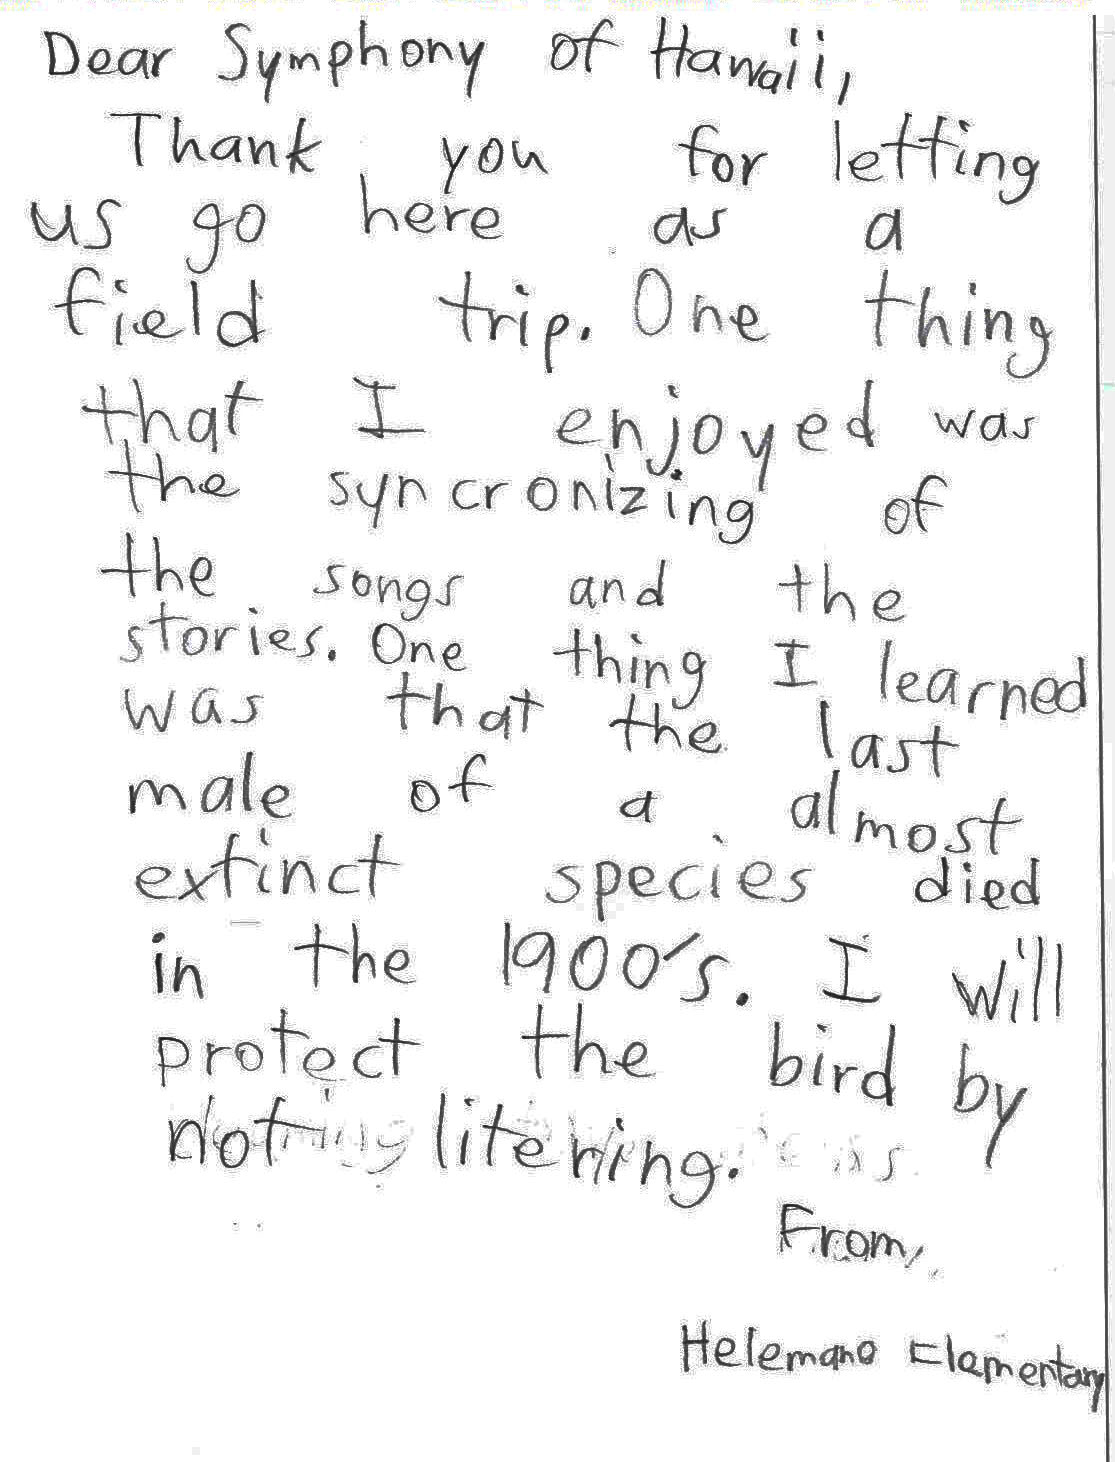 Dear Symphony of Hawaii,
Thank you for letting
us go here as a
field trip. One thing
that I enjoyed was
the syncronizing of
the songs and the
stories. One thing I learned
was that the last
male of a almost
extinct species died
in the 1900's. I will
protect the bird by
not litering.
From,
Helemano Elementary